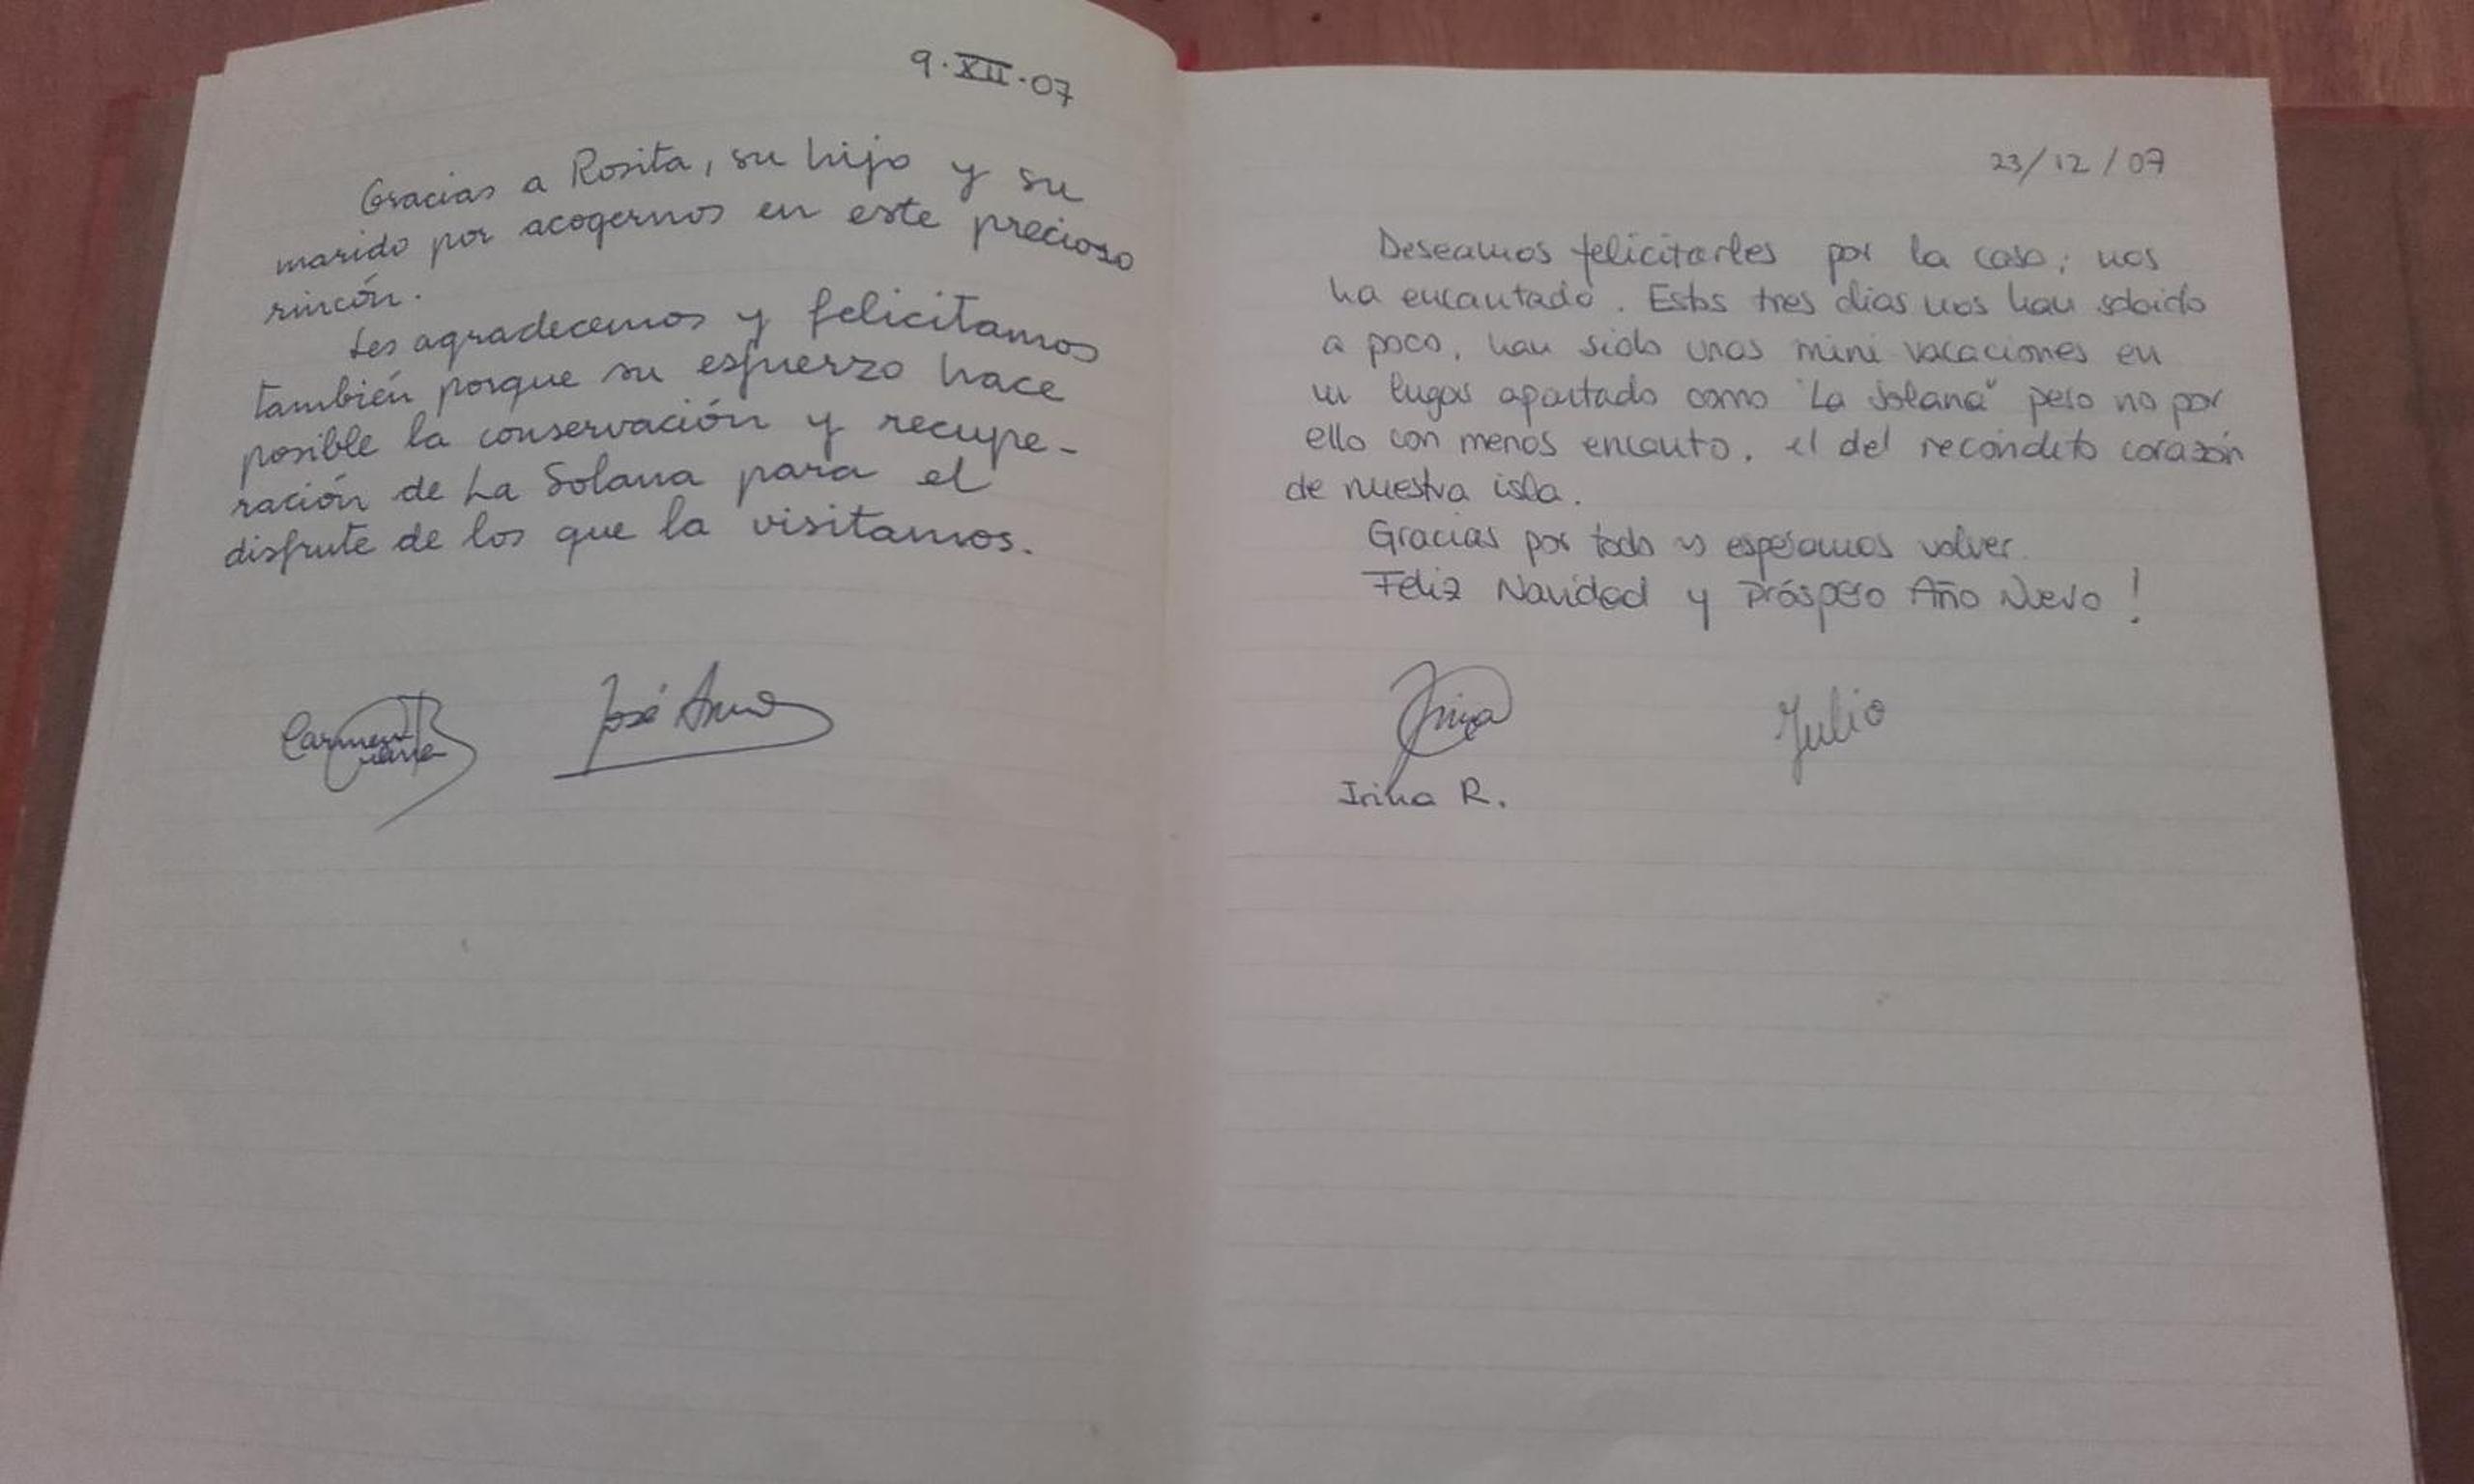 9·XII·07
Gracias a Rosita, su hijo y su
marido por acogernos en este precioso
rincón.
Les agradecemos y felicitamos
también porque su esfuerzo hace
posible la conservación y recupe-
ración de La Solana para el
disfrute de los que la visitamos.
Carmen
José
23/12/07
Deseamos felicitarles por la casa; nos
ha encantado. Estos tres días nos han sabido
a poco, han sido unas mini vacaciones en
un lugar apartado como "La Solana" pero no por
ello con menos encanto, el del recóndito corazón
de nuestra isla.
Gracias por todo y esperamos volver.
Feliz Navidad y Próspero Año Nuevo!
Irina Julio
Irina R.